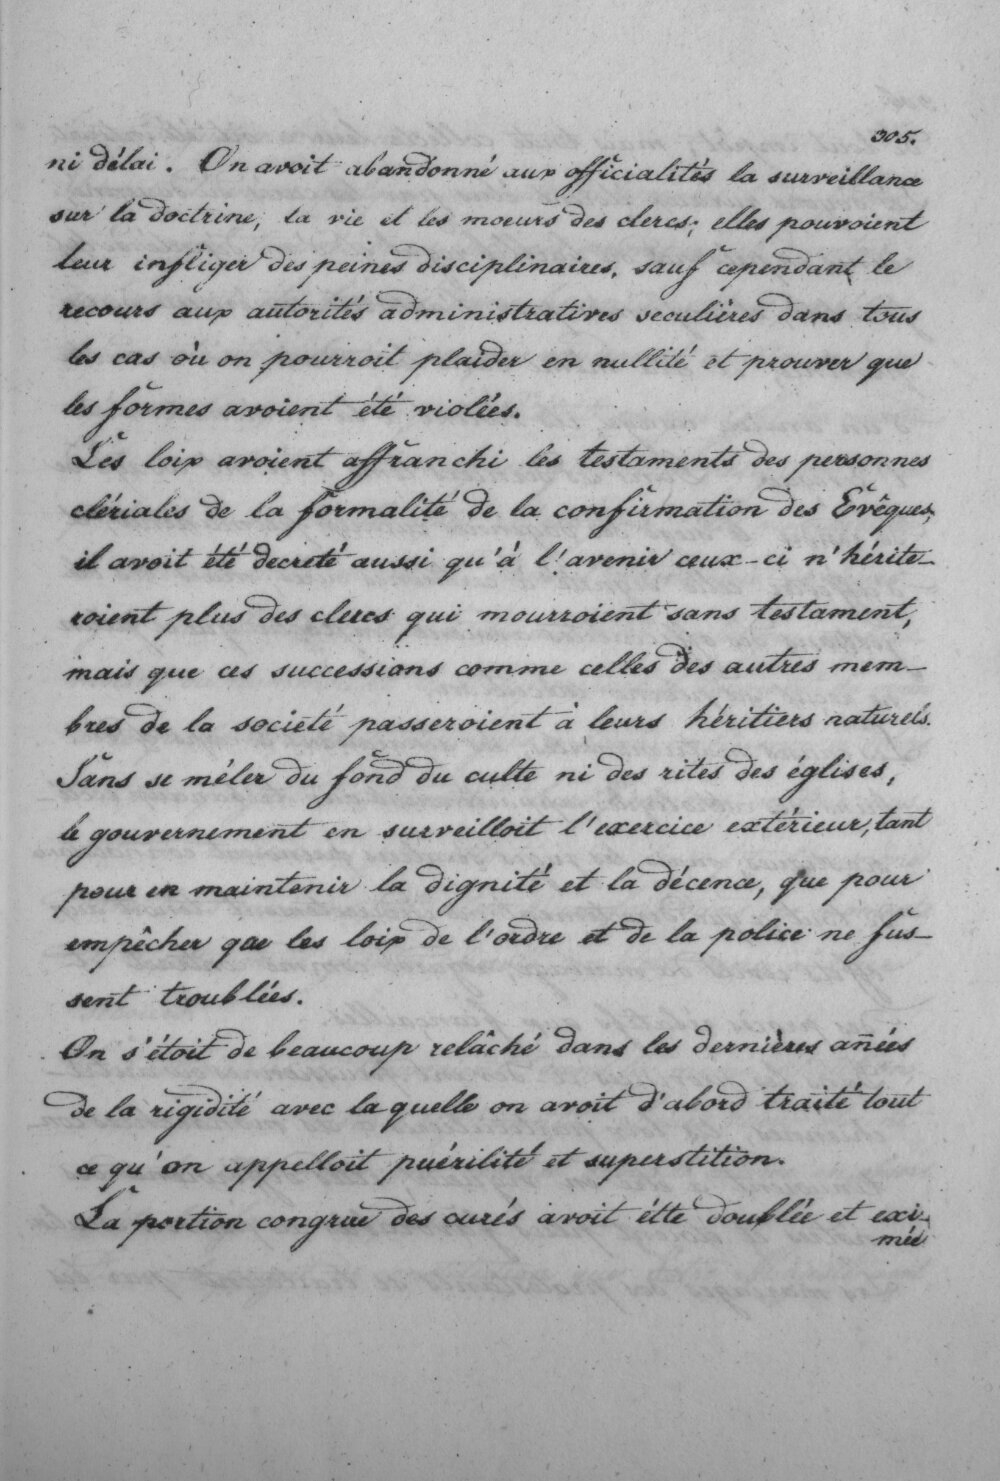 305.
ni délai. On avoit abandonné aux officialités la surveillance
sur la doctrine, la vie et les moeurs des clercs; elles pouvoient
leur infliger des peines disciplinaires, sauf cependant le
recours aux autorités administratives seculières dans tous
les cas où on pourroit plaider en nullité et prouver que
les formes avoient été violées.
Les loix avoient affranchi les testaments des personnes
clériales de la formalité de la confirmation des Evêques,
il avoit été decreté aussi qu'à l'avenir ceux-ci n'hérite-
roient plus des clercs qui mourroient sans testament,
mais que ces successions comme celles des autres mem-
bres de la societé passeroient à leurs héritiers naturels.
Sans se mêler du fond du culte ni des rites des églises,
le gouvernement en surveilloit l'exercice extérieur, tant
pour en maintenir la dignité et la décence, que pour
empêcher que les loix de l'ordre et de la police ne fus-
sent troublées.
On s'étoit de beaucoup relâché dans les dernières añées
de la rigidité avec laquelle on avoit d'abord traité tout
ce qu'on appelloit puérilité et superstition.
La portion congrue des curés avoit étte doublée et exi-
mée